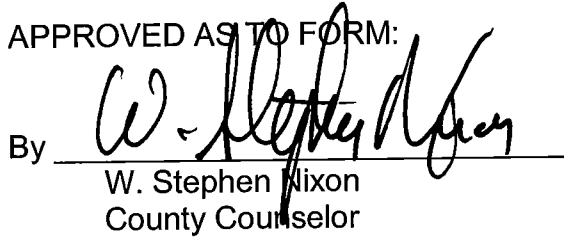 APPROVED AS TO FORM:
By W. Stephen Nixon
W. Stephen Nixon
County Counselor